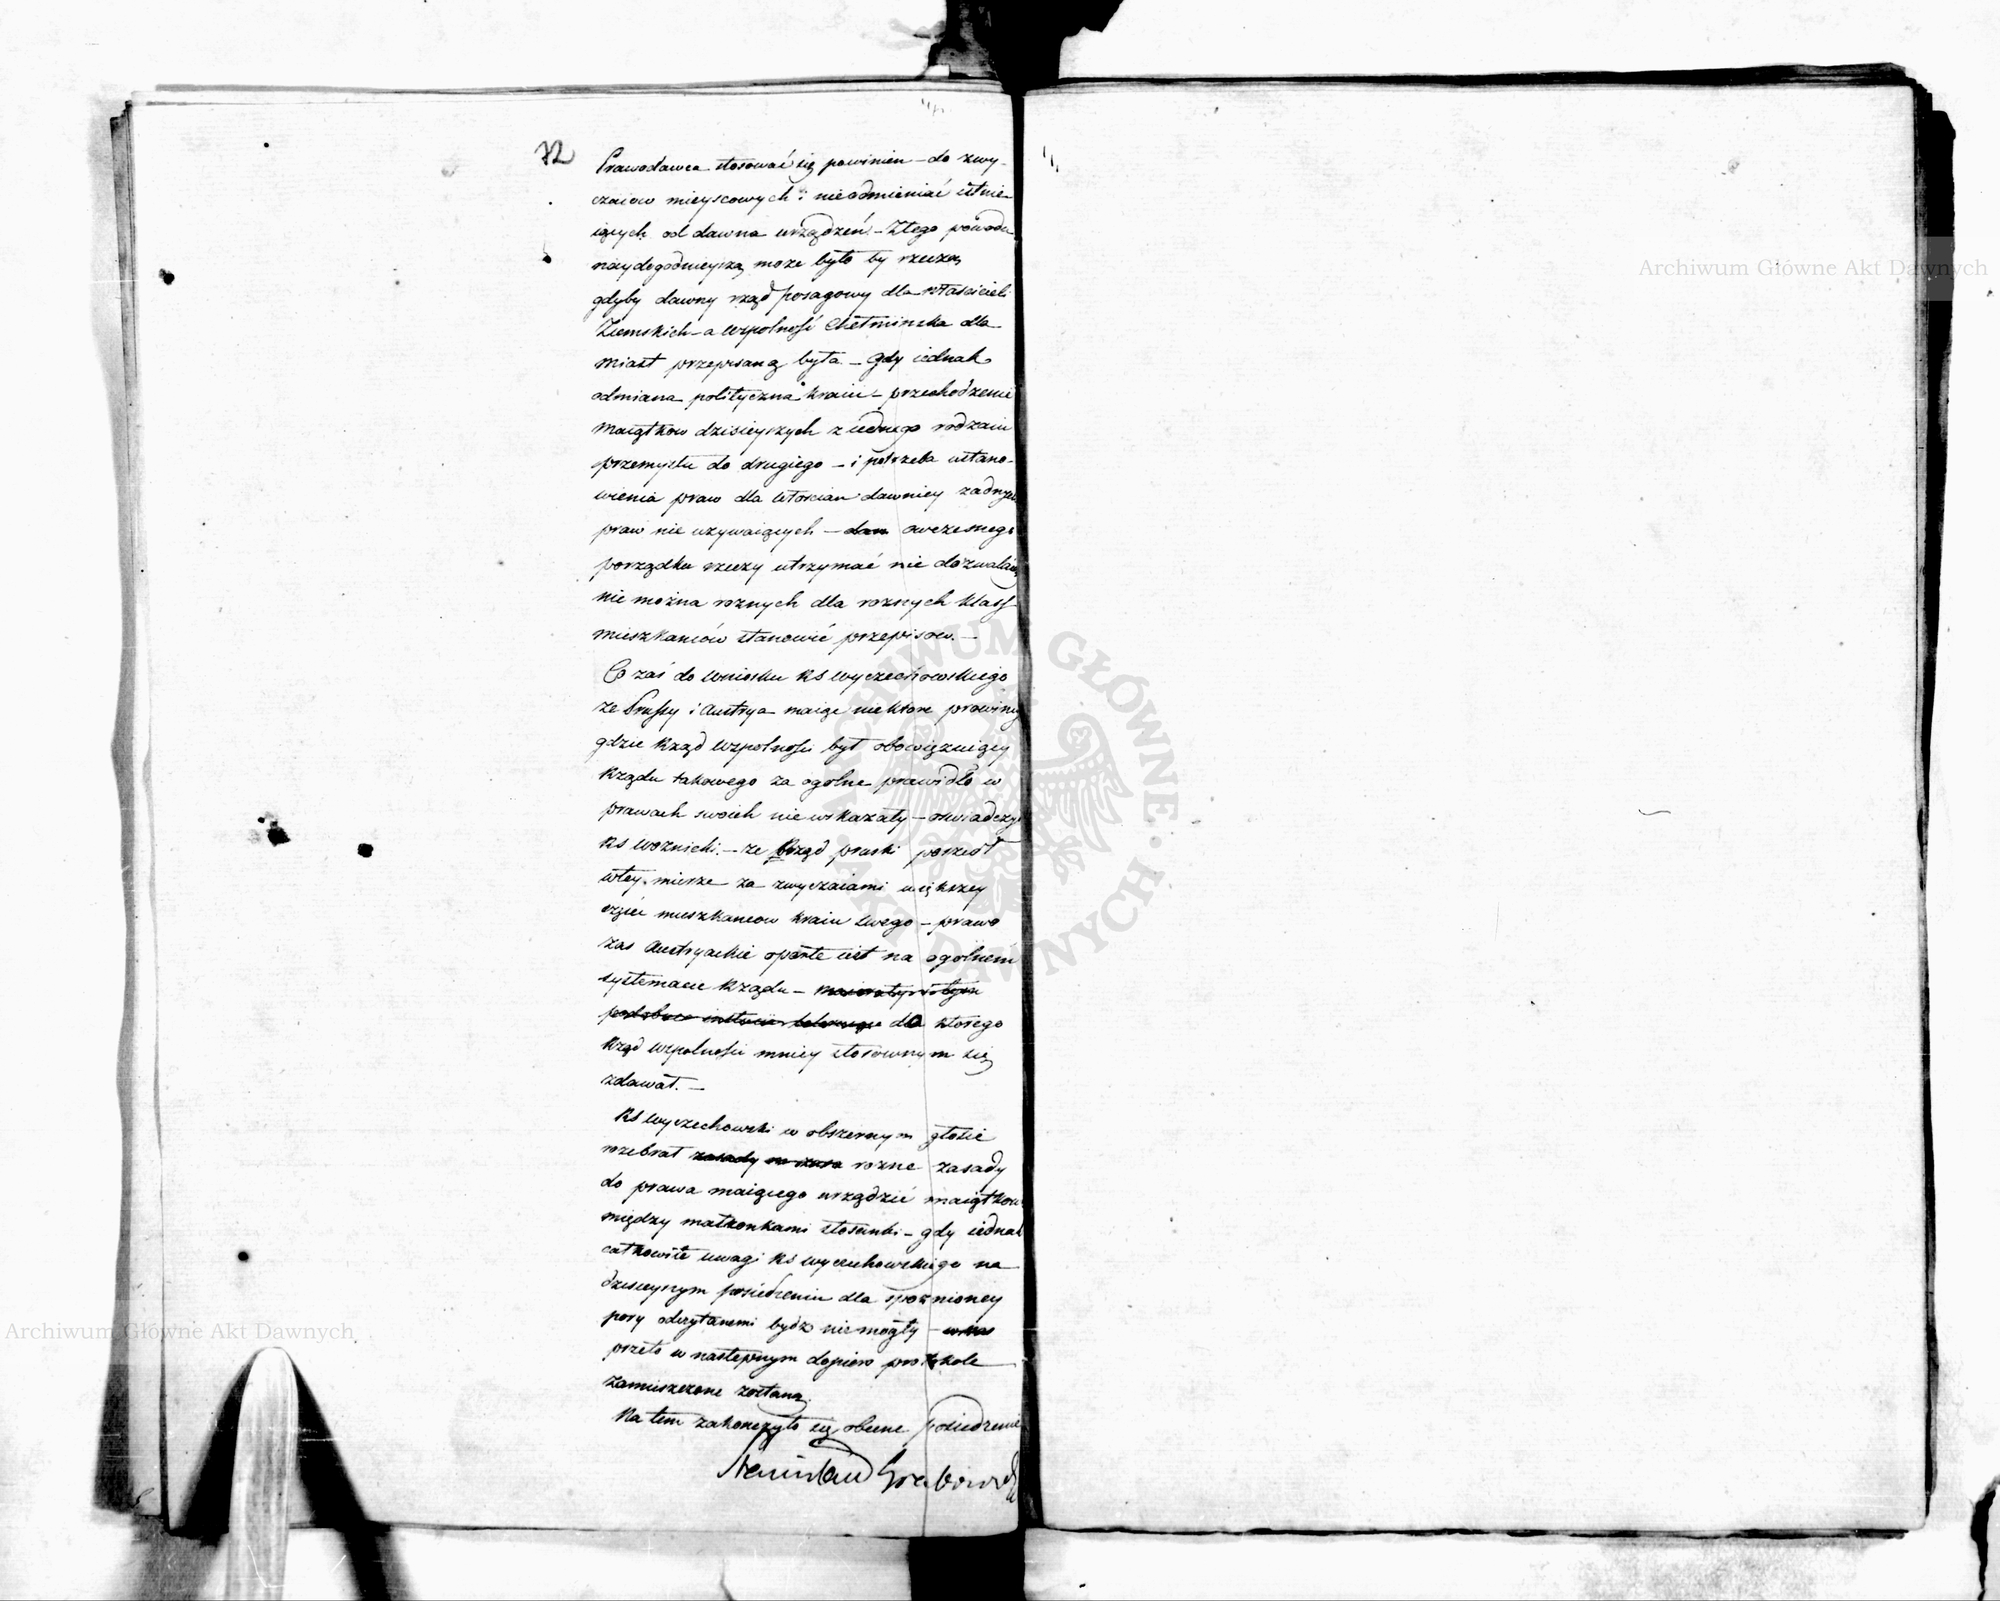 72
Prawodawca stosować się powinien – do zwy-
czaiow mieyscowych i nieodmieniać istnie-
iących od dawna urządzeń. – Ztego powodu
naydogodnieyszą może było by rzeczą
gdyby dawny rząd posagowy dla własicieli
Ziemskich – a wspolność Chełminska dla
miast przepisaną była. – Gdy iednak
odmiana polityczna kraiu – przechodzenie
maiątkow dzisieyszych z iednego rodzaiu
przemysłu do drugiego – i potrzeba ustano-
wienia praw dla włoscian dawniey żadnych
praw nie używaiących – owczesnego
porządku rzeczy utrzymać nie dozwalaią
nie można roznych dla roznych klass
mieszkancow stanowić przepisow. –
Co zaś do wniosku KS Wyczechowskiego
że Prussy i Austrya maiąc niektóre prowincye
gdzie Rząd wspolnosci był obowięzuiący
Rządu takowego za ogolne prawidło w
prawach swoich nie wskazały – oswiadczył
KS Woznicki. – że Rząd pruski poszedł
wtey mierze za zwyczaiami większey
częsci mieszkancow kraiu swego – prawo
zas Austryackie oparte iest na ogolnem
systemacie Rządu – 
dla ktorego
Rząd wspolnosci mniey stosownym się
zdawał. –
KS Wyczechowski w obszernym głosie
rozebrał rozne zasady
do prawa maiącego urządzić maiątkowe
między małżonkami stosunki – gdy iednak
całkowite uwagi KS Wyczechowskiego na
dzisieyszym posiedzeniu dla spoznioney
pory odczytanemi bydz niemogły –
przeto w następnym dopiero protokole
zamieszczone zostaną.
Na tem zakonczyło się obecne posiedzenie
Stanisław Grabowski
Archiwum Główne Akt Dawnych
Archiwum Główne Akt Dawnych
ARCHIWUM GŁÓWNE AKT DAWNYCH